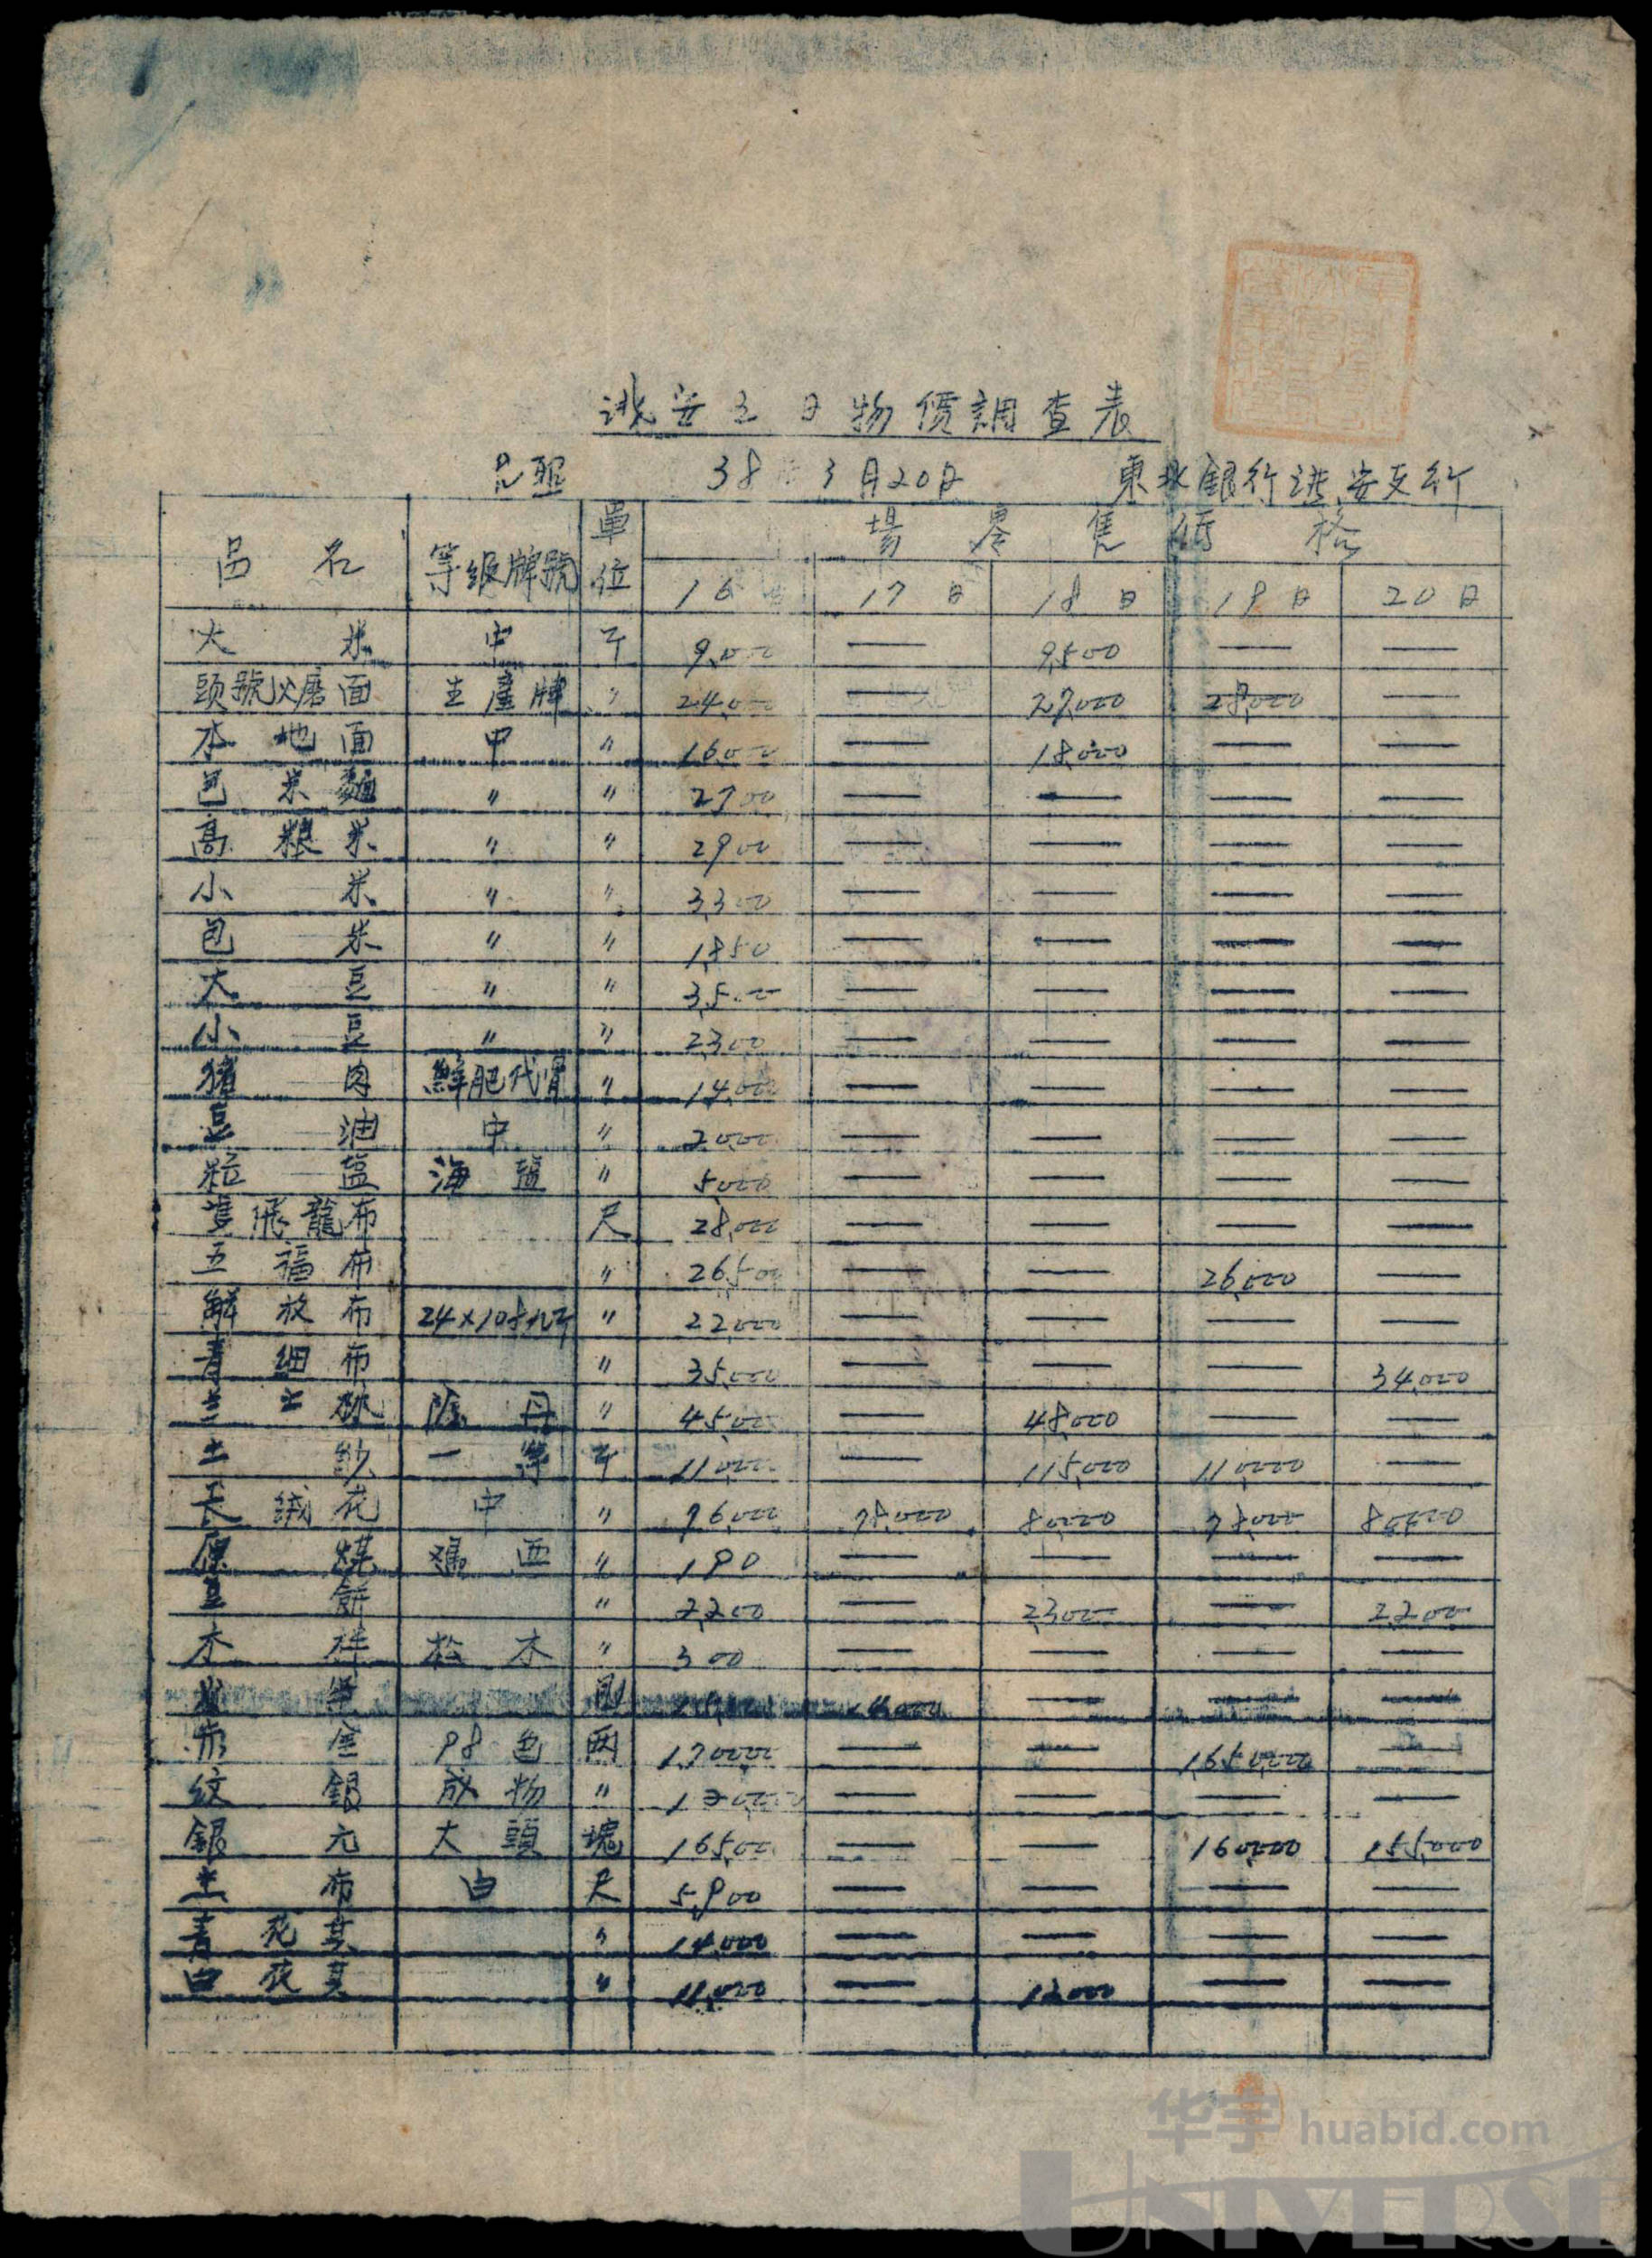 洮安五日物價調查表
38年3月20日 東北銀行洮安支行
品名 等級牌號 單位 場零售價格
16日 17日 18日 19日 20日
大米 中 斤 9,000 — 9,500 — —
頭號火磨面 生產牌 〃 24,000 — 27,000 28,000 —
本地面 中 〃 16,000 — 18,000 — —
包米麵 〃 〃 2700 — — — —
高粮米 〃 〃 2900 — — — —
小米 〃 〃 3,300 — — — —
包米 〃 〃 1,850 — — — —
大豆 〃 〃 3,500 — — — —
小豆 〃 〃 2,300 — — — —
猪肉 鮮肥代骨 〃 14,000 — — — —
豆油 中 〃 — — — —
粒盐 海盐 〃 5,000 — — — —
雙飛龍布 尺 28,000 — — — —
五福布 〃 26,500 — — 26,000 —
解放布 〃 22,000 — — — —
青細布 〃 35,000 — — — 34,000
丹 〃 — 48,000 — —
土紗 一等 斤 — 115,000 110,000 —
長絨花 中 〃 76,000 78,000 80,000 78,000 80,000
原煤 〃 190 — — — —
豆餅 〃 2,200 — 2,300 — 2,200
木柈 松木 〃 300 — — — —
— — —
赤金 98色 两 — — 1,650,000 —
紋銀 成物 〃 — — — —
銀元 大頭 塊 165,000 — — 160,000 155,000
土布 白 尺 5,900 — — — —
青花其 〃 14,000 — — — —
白花其 〃 11,000 — 12,000 — —
华宇 huabid.com
UNIVERSE